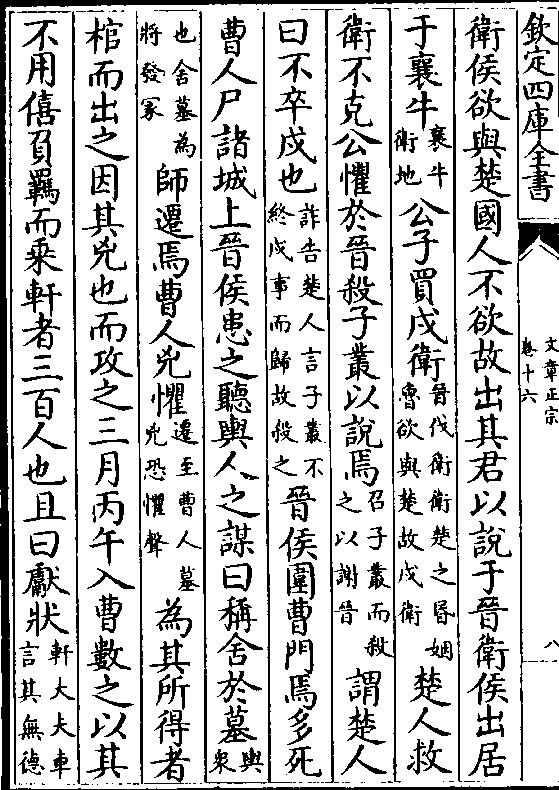 欽定四庫全書
文章正宗
卷十六
八
衛侯欲與楚國人不欲故出其君以說于晉衛侯出居
于襄牛襄牛衛地公子買戍衛晉伐衛衛楚之昏姻魯欲與楚故戍衛楚人救
衛不克公懼於晉殺子叢以說焉召子叢而殺之以謝晉謂楚人
曰不卒戍也詐告楚人言子叢不終戍事而歸故殺之晉侯圍曹門焉多死
曹人尸諸城上晉侯患之聽輿人之謀曰稱舍於墓輿衆
也舍墓為將發冢師遷焉曹人兇懼遷至曹人墓兇恐懼聲為其所得者
棺而出之因其兇也而攻之三月丙午入曹數之以其
不用僖負羈而乘軒者三百人也且曰獻狀軒大夫車言其無德